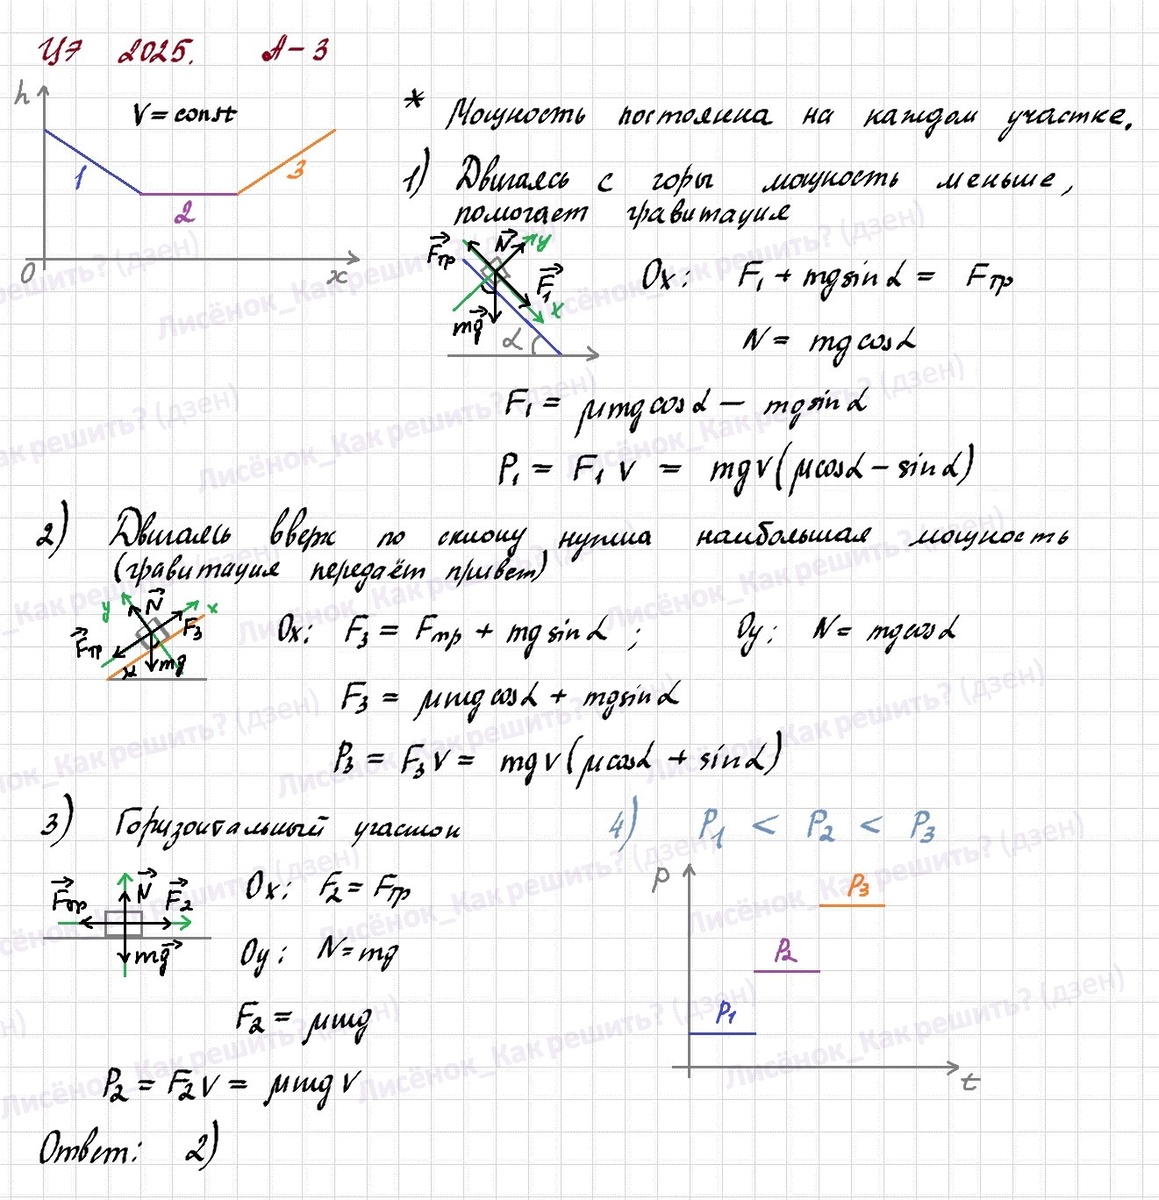 ЦЭ 2025. А-3
h
V = const
1
2
3
0
x
* Мощность постоянна на каждом участке.
1) Двигаясь с горы мощность меньше,
помогает гравитация
Fтр
N
y
F₁
x
mg
α
Ox: F₁ + mg sin α = Fтр
N = mg cos α
F₁ = μmg cos α − mg sin α
P₁ = F₁ v = mgv(μcosα − sin α)
2) Двигаясь вверх по склону нужна наибольшая мощность
(гравитация передаёт привет)
y
N
x
F₃
Fтр
mg
Ox: F₃ = Fтр + mg sin α ; Oy: N = mg cos α
F₃ = μmg cos α + mg sin α
P₃ = F₃ v = mgv(μcosα + sin α)
3) Горизонтальный участок
Fтр
N
F₂
mg
Ox: F₂ = Fтр
Oy: N = mg
F₂ = μmg
P₂ = F₂ v = μmg v
4) P₁ < P₂ < P₃
P
P₃
P₂
P₁
t
Ответ: 2)
Лисёнок_Как решить? (дзен)